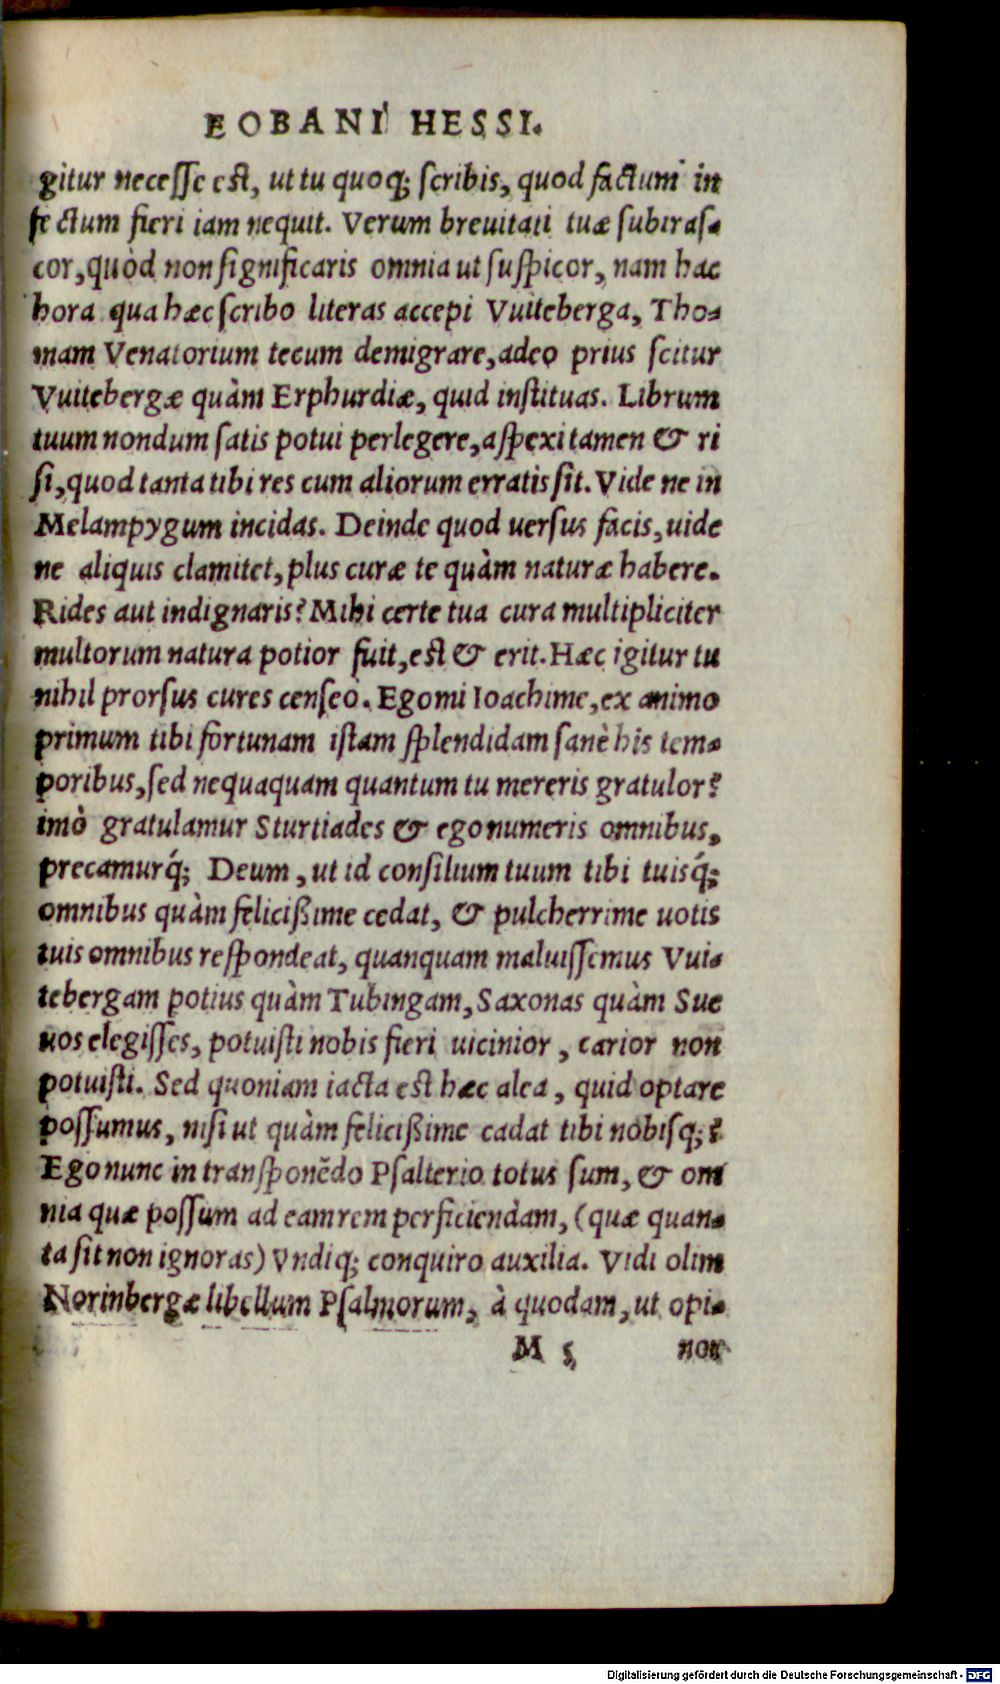 EOBANI HESSI.
gitur necesse est, ut tu quoq; scribis, quod factum in
fectum fieri iam nequit. Verum breuitati tuæ subiras-
cor, quòd non significaris omnia ut suspicor, nam hac
hora qua hæc scribo literas accepi Vuiteberga, Tho-
mam Venatorium tecum demigrare, adeo prius scitur
Vuitebergæ quàm Erphurdiæ, quid instituas. Librum
tuum nondum satis potui perlegere, aspexi tamen & ri
si, quod tanta tibi res cum aliorum erratis sit. Vide ne in
Melampygum incidas. Deinde quod uersus facis, uide
ne aliquis clamitet, plus curæ te quàm naturæ habere.
Rides aut indignaris? Mihi certe tua cura multipliciter
multorum natura potior fuit, est & erit. Hæc igitur tu
nihil prorsus cures censeo. Ego mi Ioachime, ex animo
primum tibi fortunam istam splendidam sanè his tem-
poribus, sed nequaquam quantum tu mereris gratulor?
imò gratulamur Sturtiades & ego numeris omnibus,
precamurq́; Deum, ut id consilium tuum tibi tuisq́;
omnibus quàm felicißime cedat, & pulcherrime uotis
tuis omnibus respondeat, quanquam maluissemus Vui-
tebergam potius quàm Tubingam, Saxonas quàm Sue
uos elegisses, potuisti nobis fieri uicinior, carior non
potuisti. Sed quoniam iacta est hæc alea, quid optare
possumus, nisi ut quàm felicißime cadat tibi nobisq;?
Ego nunc in transponẽdo Psalterio totus sum, & om
nia quæ possum ad eam rem perficiendam, (quæ quan-
ta sit non ignoras) Vndiq; conquiro auxilia. Vidi olim
Norinbergæ libellum Psalmorum, à quodam, ut opi-
M 5 nor
Digitalisierung gefördert durch die Deutsche Forschungsgemeinschaft - DFG